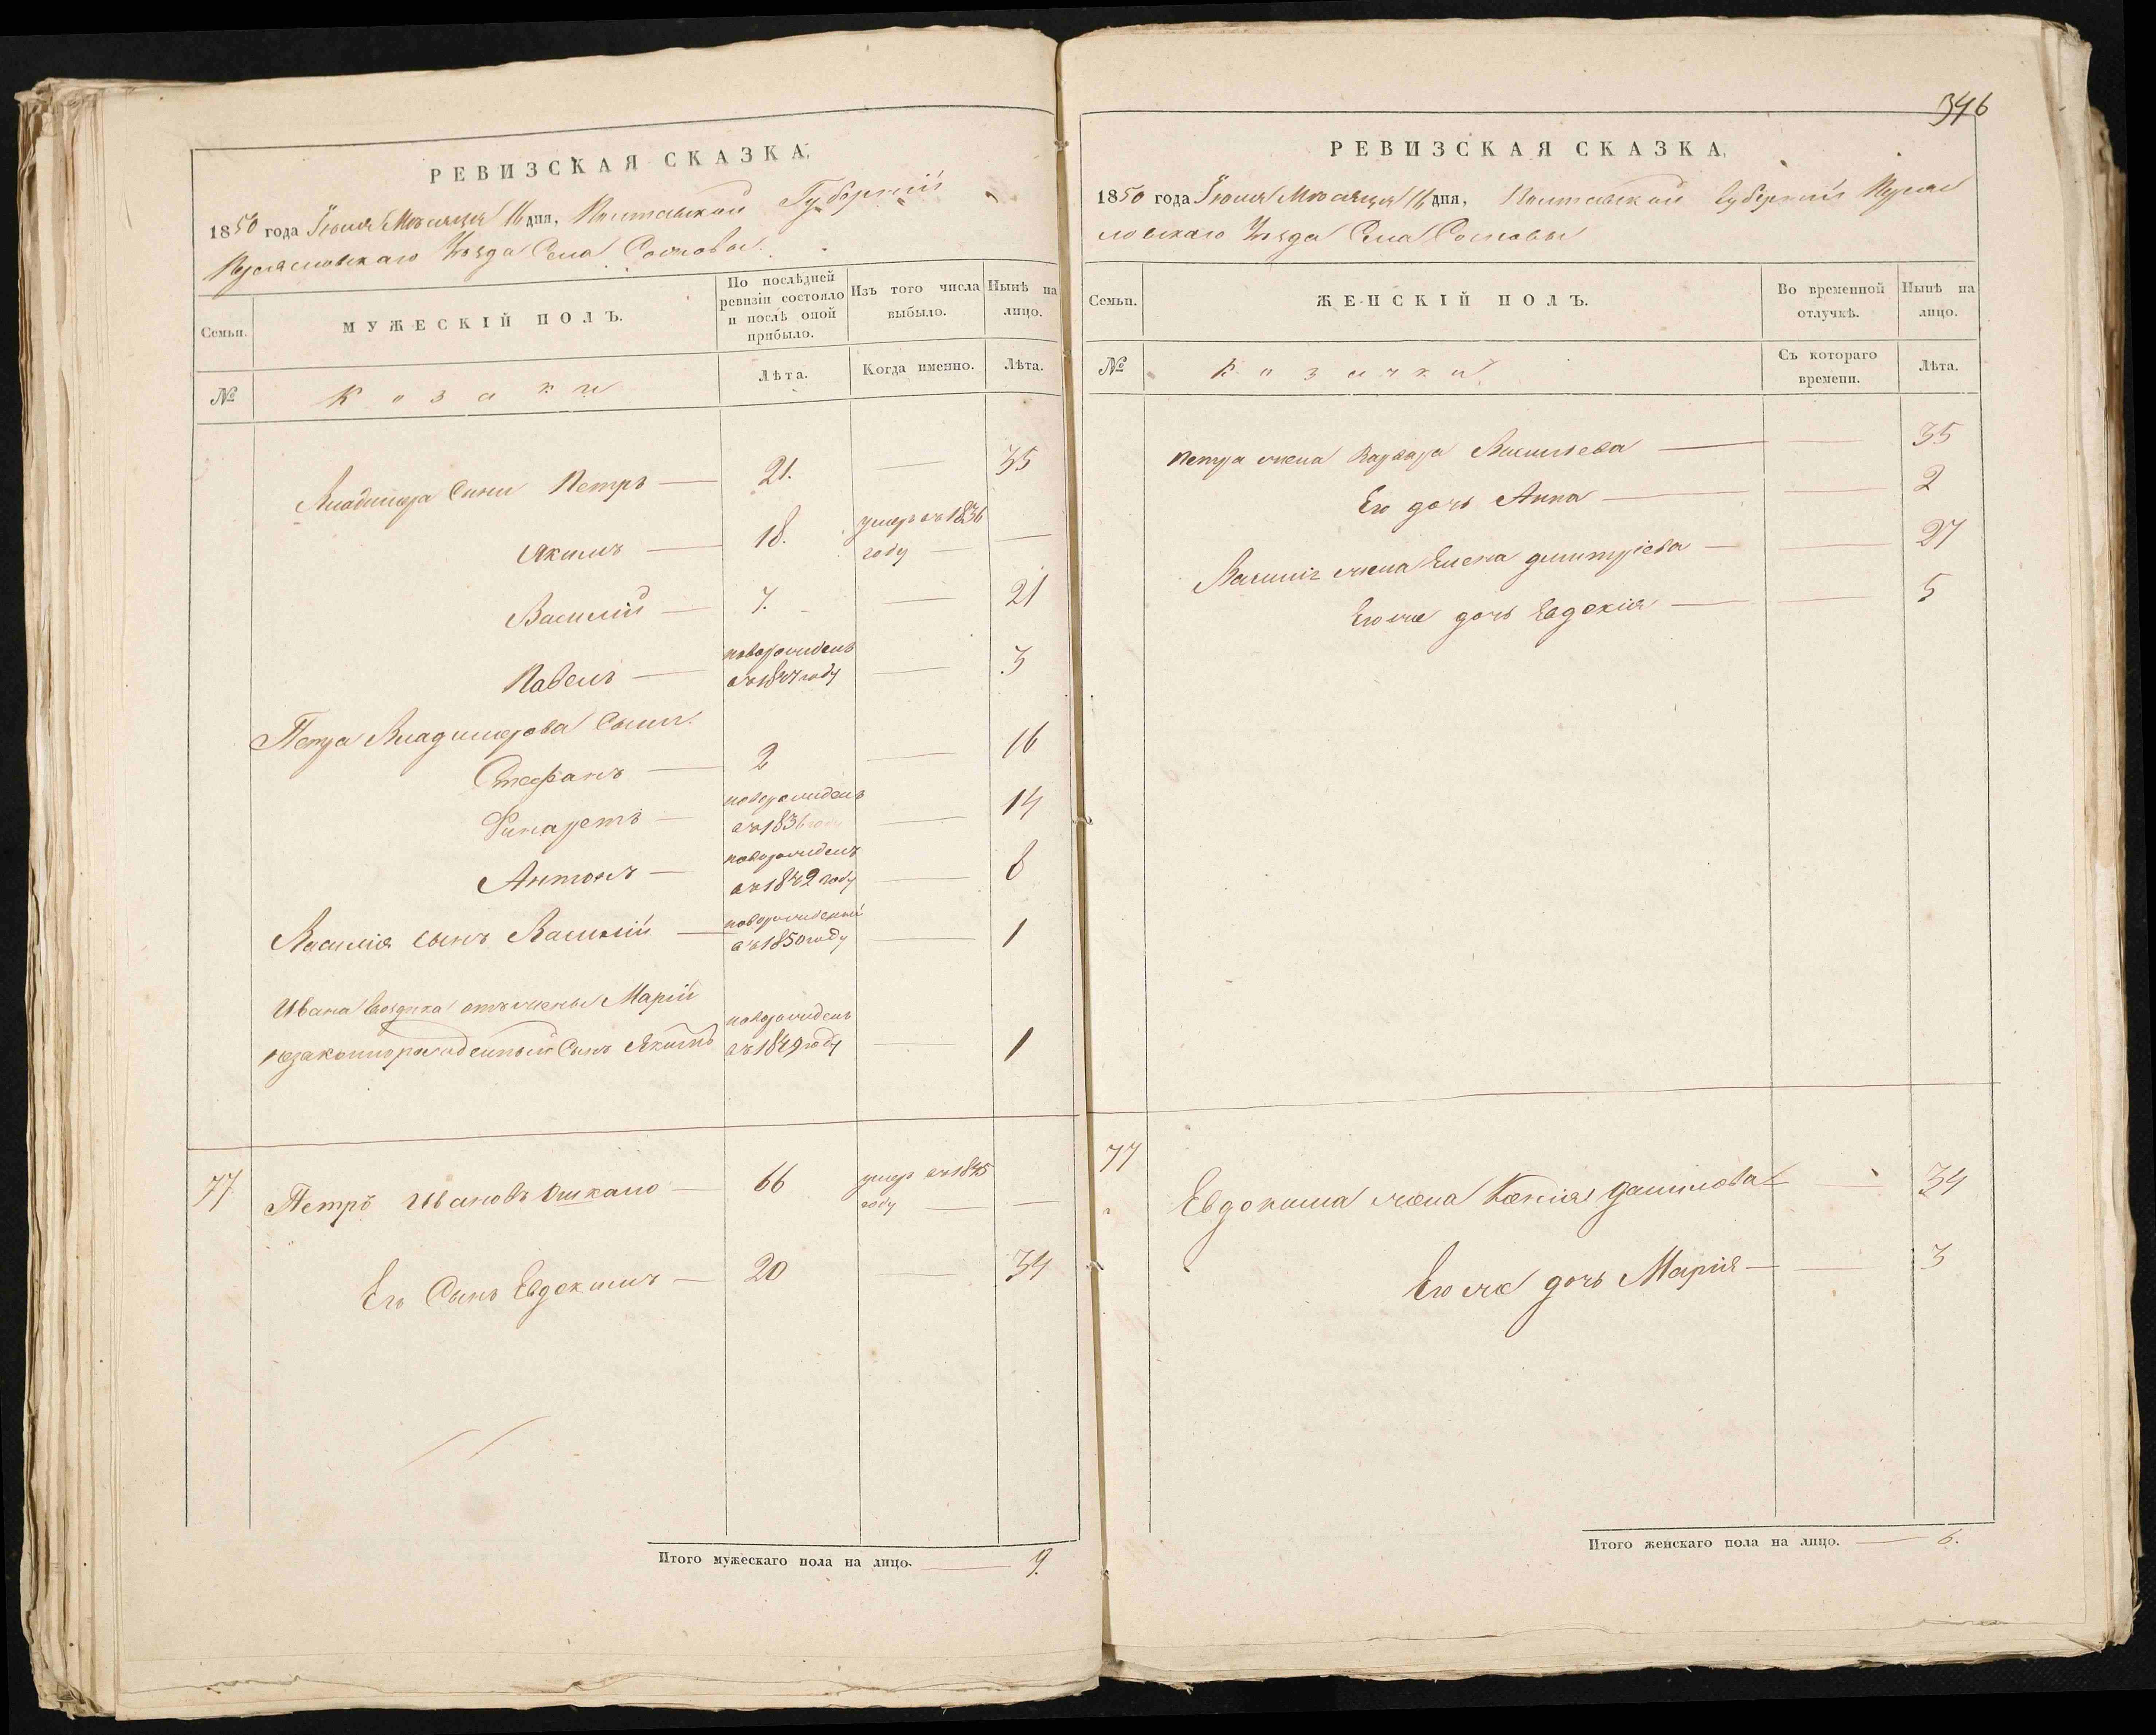 РЕВИЗСКАЯ СКАЗКА,
1850 года Іюня Месяца 16 дня, Полтавской Губерніи
Переяславскаго Уезда Села Сосновы
Семьи.
МУЖЕСКІЙ ПОЛЪ.
По послѣдней ревизіи состояло и послѣ оной прибыло.
Изъ того числа выбыло.
Нынѣ на лицо.
№
Козаки
Лѣта.
Когда именно.
Лѣта.
Владимера Сыни Петръ — 21. — 35
Якимъ — 18. умеръ въ 1836 году —
Василій — 7. — 21
Павелъ — новорожденъ въ 1847 году — 3
Петра Владимерова Сыны
Стефанъ — 2 — 16
Филаретъ — новорожденъ въ 1836 году — 14
Антонъ — новорожденъ въ 1842 году — 8
Василія сынъ Василій — новорожденый въ 1850 году — 1
Ивана отъ жены Маріи
незаконнорожденный Сынъ Якимъ новорожденъ въ 1849 году — 1
77 Петръ Ивановъ Ошкало — 66 умеръ въ 1845 году —
Его Сынъ Евдокимъ — 20 — 34
Итого мужескаго пола на лицо. — 9.
346
РЕВИЗСКАЯ СКАЗКА,
1850 года Іюня Месяца 16 дня, Полтавской Губерніи Переяс
лавскаго Уезда Села Сосновы
Семьи.
ЖЕНСКІЙ ПОЛЪ.
Во временной отлучкѣ.
Нынѣ на лицо.
№
Козачки
Съ котораго времени.
Лѣта.
Петра жена Варвара Васильева — — 35
Его дочь Анна — — 2
Василія жена Елена Дмитріева — — 27
Его же дочь Евдокія — — 5
77
Евдокима жена Ксенія Данилова — — 34
Его же дочь Марія — — 3
Итого женскаго пола на лицо. — 6.